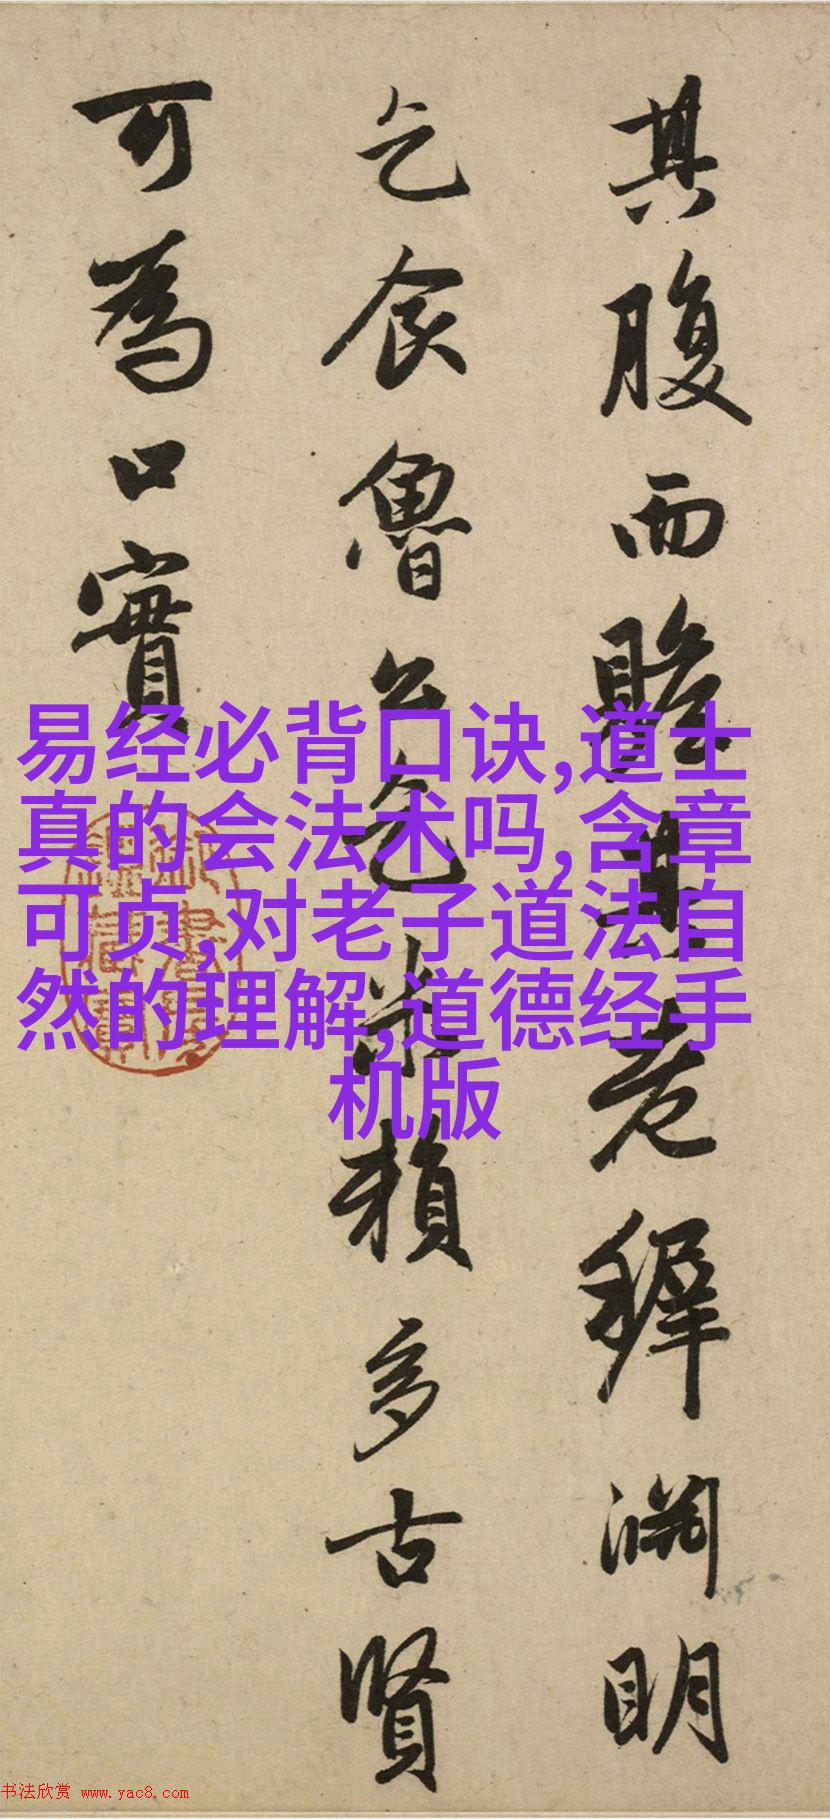 其腹而贍其老穉淵明
乞食魯公乞米賴多古賢
可為口實
易经必背口诀,道士
真的会法术吗,含章
可贞,对老子道法自
然的理解,道德经手
机版
书法欣赏 www.yac8.com